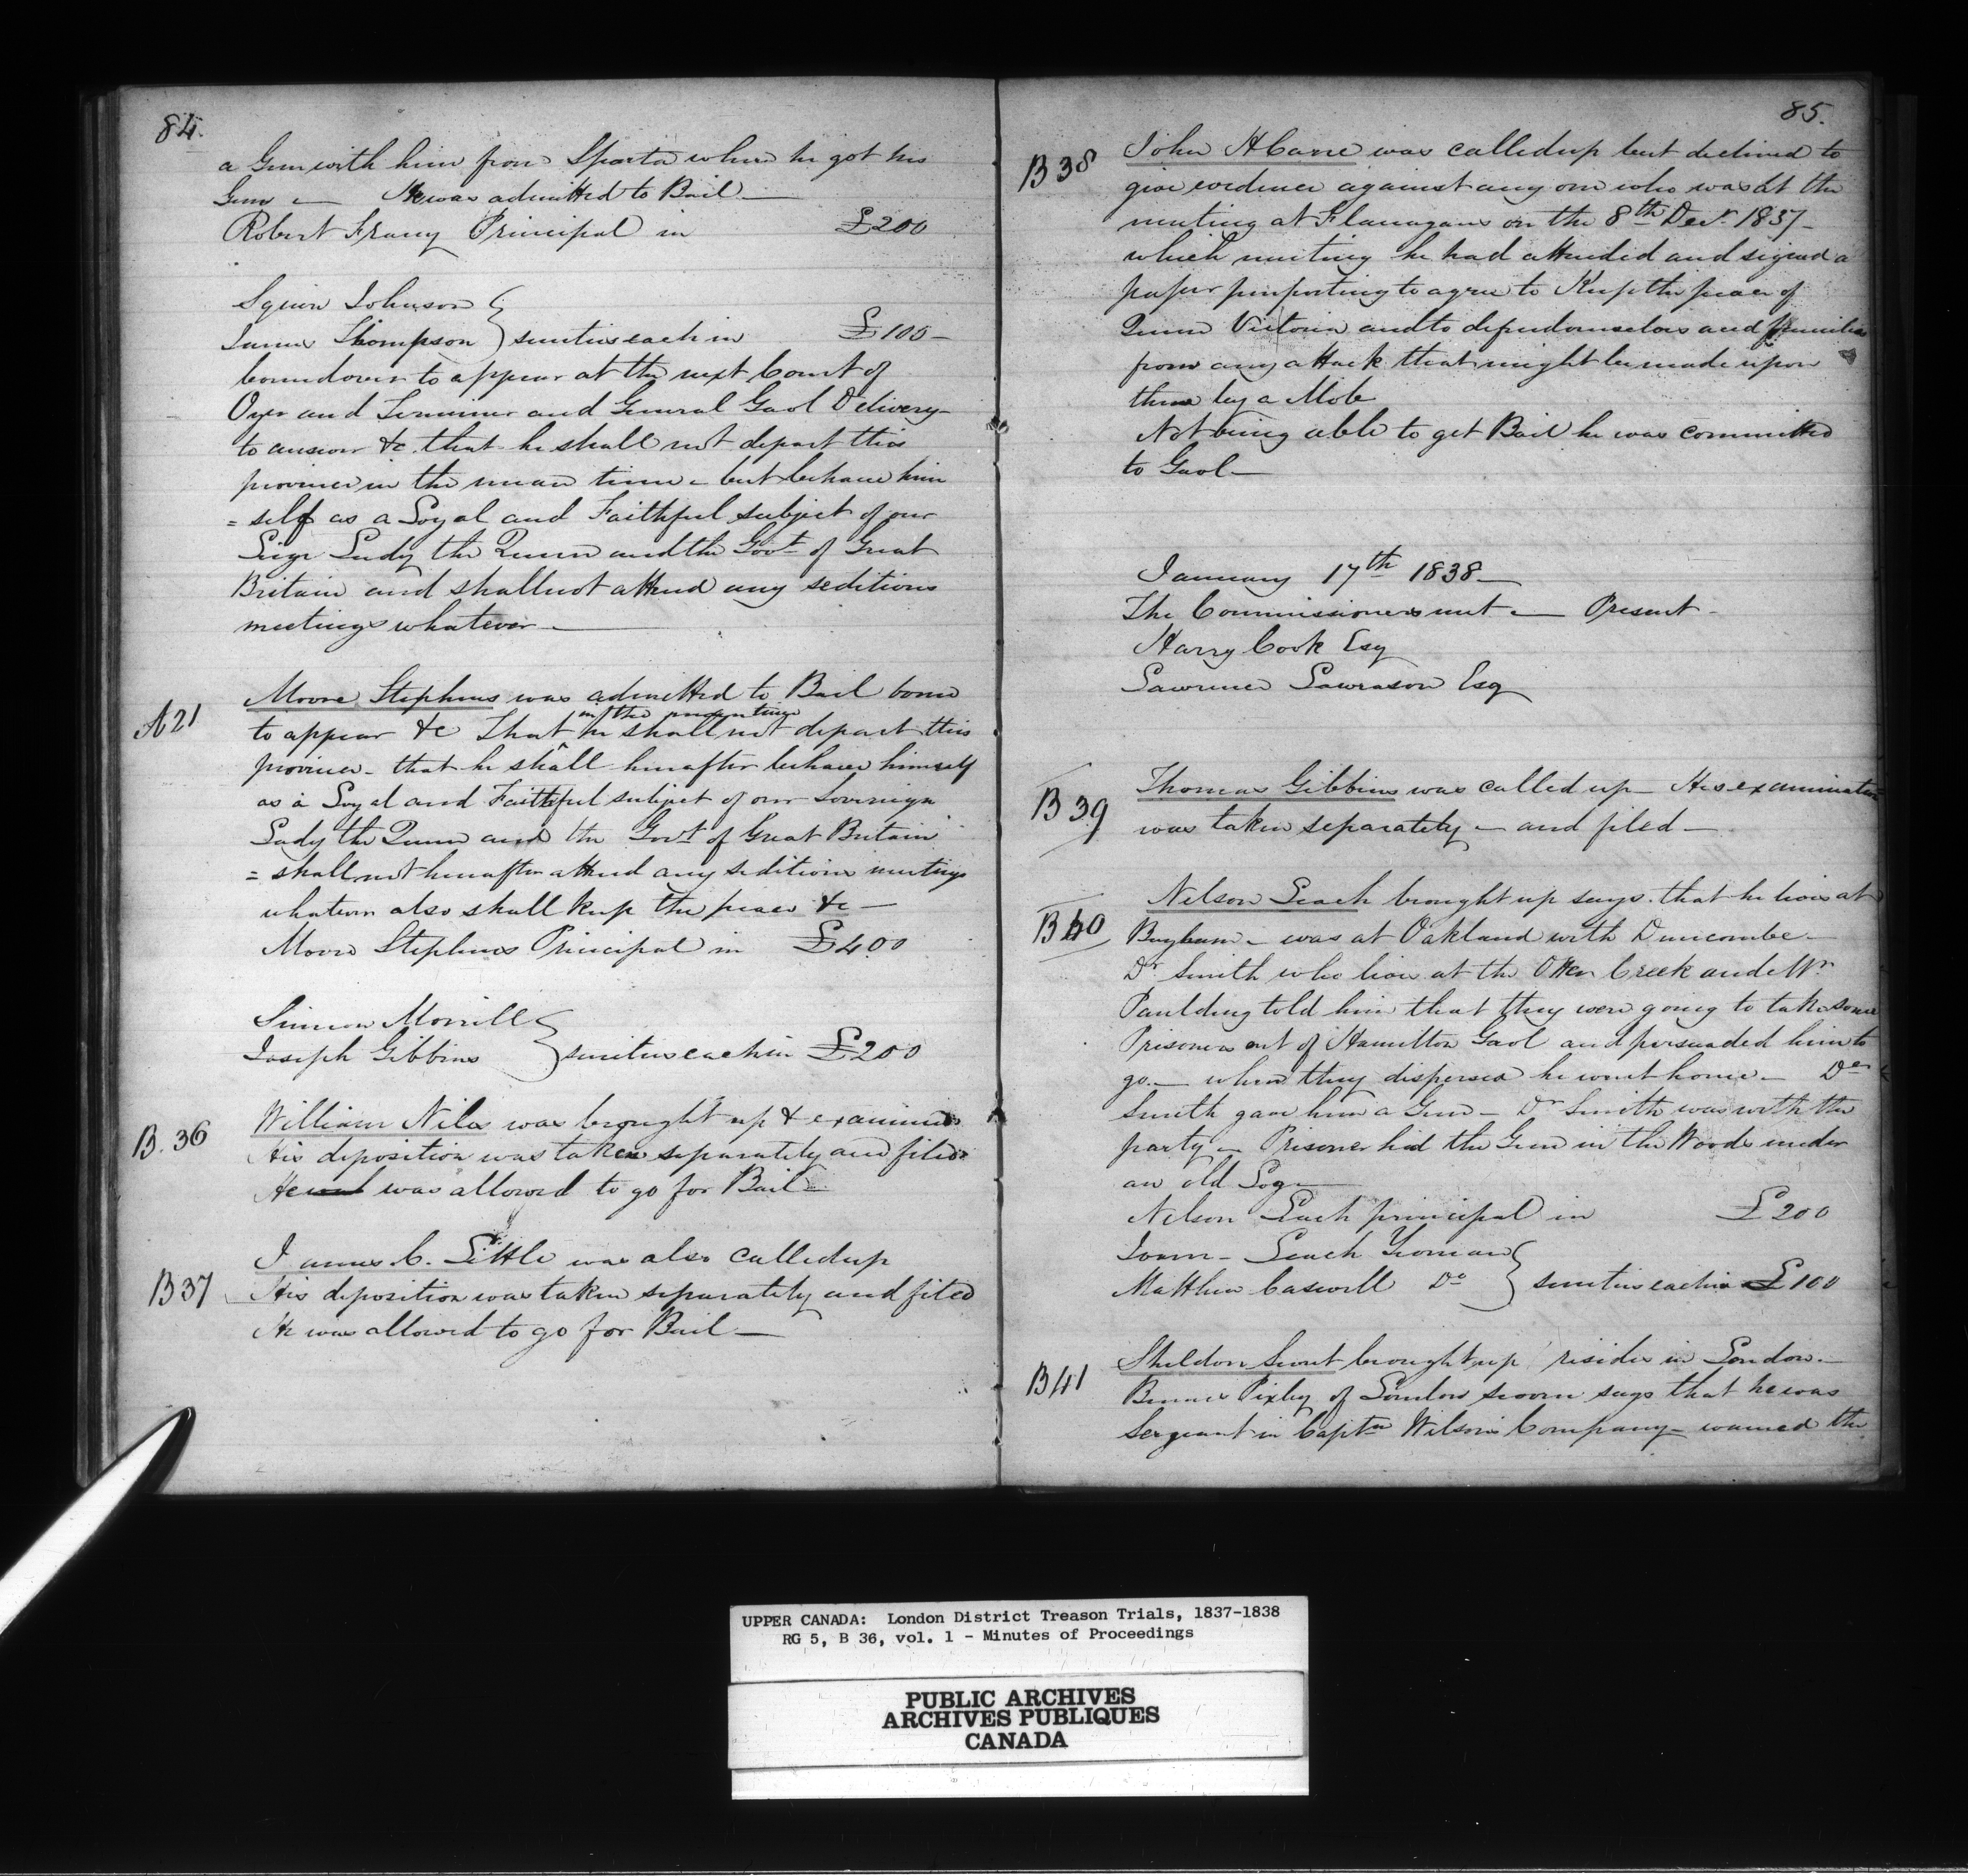 84.
a Gun with him from Sparta where he got his
Gun — He was admitted to Bail —
Robert Franey Principal in £200
Squire Johnson
James Thompson } sureties each in £100 –
bound over to appear at the next Court of
Oyer and Terminer and General Gaol Delivery –
to answer &c. that he shall not depart this
province in the mean time – but behave him
= self as a Loyal and Faithful subject of our
Liege Lady the Queen and the Govt of Great
Britain and shall not attend any seditious
meetings whatever —
A 21
Moore Stephens was admitted to Bail bound
to appear &c That in the meantime he shall not depart this
province – that he shall hereafter behave himself
as a Loyal and Faithful subject of our Sovereign
Lady the Queen and the Govt of Great Britain
= shall not hereafter attend any seditious meetings
whatever also shall keep the peace &c —
Moore Stephens Principal in £400
Simeon Morrill
Joseph Gibbins } sureties each in £200
B. 36
William Niles was brought up & examined
His deposition was taken separately and filed
He was allowed to go for Bail –
B 37
James C. Little was also called up
His deposition was taken separately and filed
He was allowed to go for Bail —
85.
B 38
John H Carre was called up but declined to
give evidence against any one who was at the
meeting at Flanagans on the 8th Decr 1837 –
which meeting he had attended and signed a
paper purporting to agree to Keep the peace of
Queen Victoria and to defend ourselves and families
from any attack that might be made upon
them by a Mob
Not being able to get Bail he was committed
to Gaol —
January 17th 1838 —
The Commissioners met — Present –
Harry Cook Esq
Lawrence Lawrason Esq
B 39
Thomas Gibbins was called up – His examination
was taken separately – and filed –
B 40
Nelson Leach brought up says that he lives at
Bayham – was at Oakland with Duncombe –
Dr Smith who lives at the Otter Creek and Mr
Paulding told him that they were going to take some
Prisoners out of Hamilton Gaol and persuaded him to
go. — when they dispersed he went home – Dr
Smith gave him a Gun – Dr Smith was with the
party – Prisoner hid the Gun in the Woods under
an old Log —
Nelson Leach principal in £200
Leach Yeoman
Matthew Caswell Do } sureties each in £100
B 41
Sheldon brought up resides in London –
Pixley of London sworn says that he was
Sergeant in Captn Wilson's Company – warned the
UPPER CANADA: London District Treason Trials, 1837-1838
RG 5, B 36, vol. 1 - Minutes of Proceedings
PUBLIC ARCHIVES
ARCHIVES PUBLIQUES
CANADA